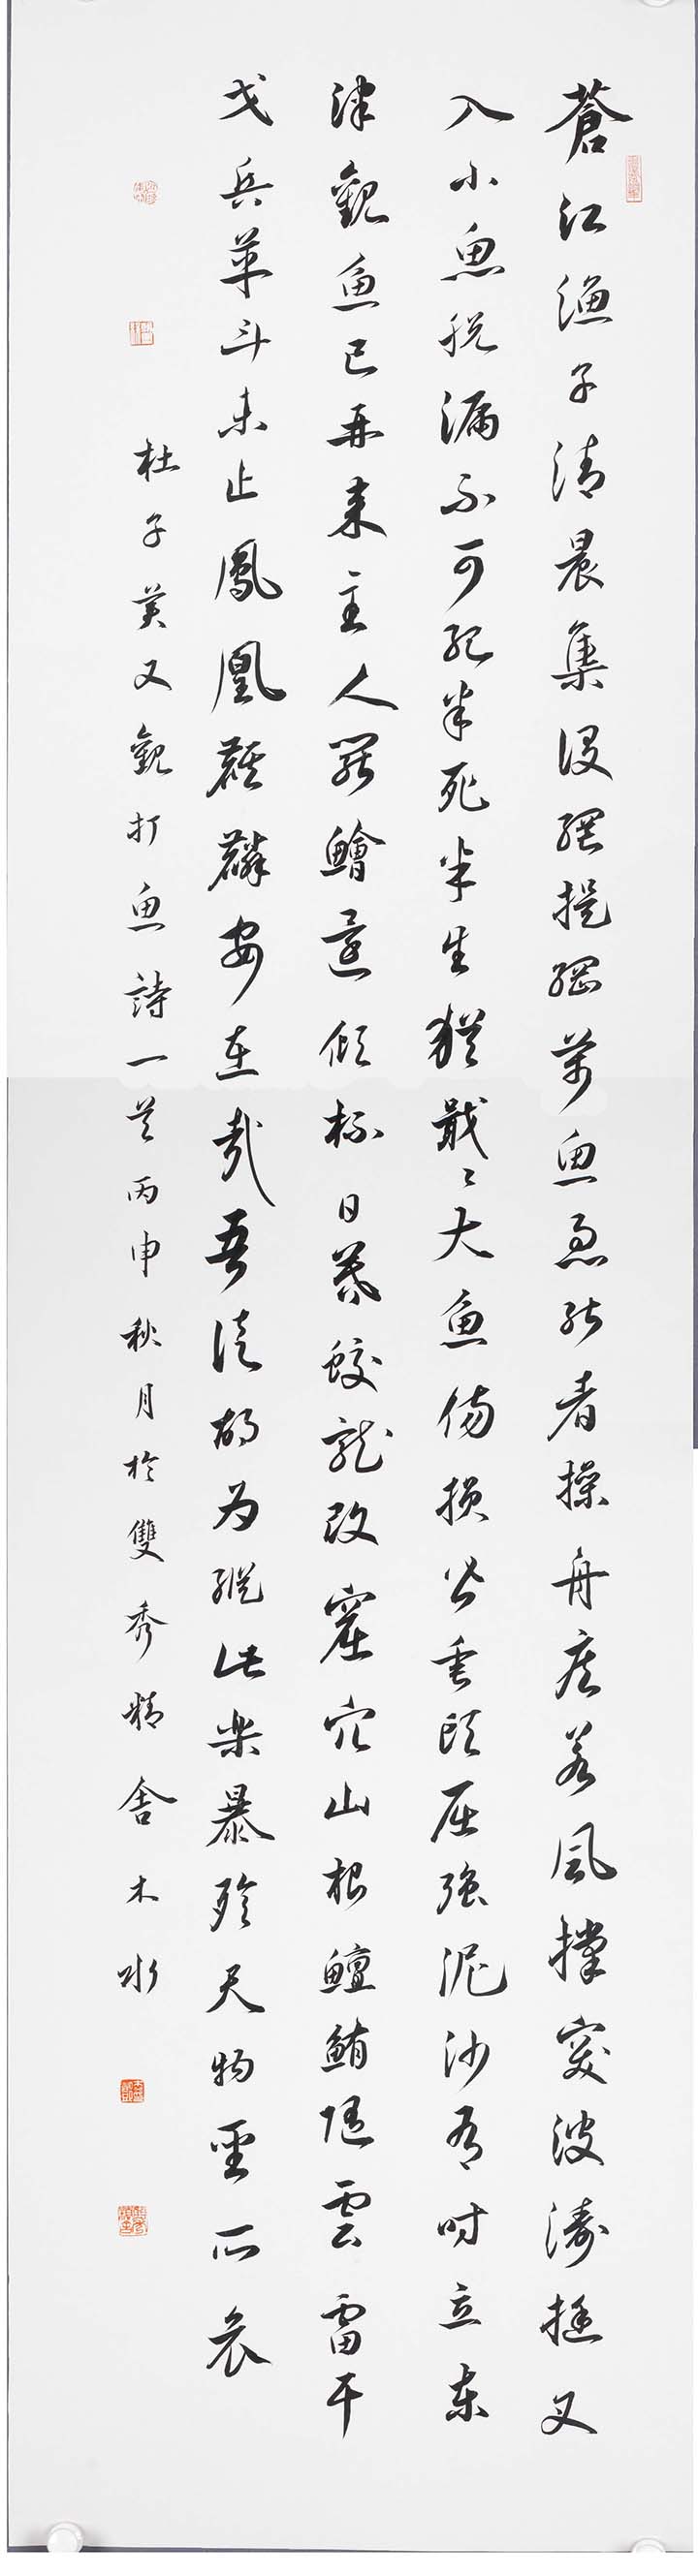 蒼江漁子清晨集設網提綱萬魚急能者操舟疾若風撐突波濤挺叉
入小魚脫漏不可紀半死半生猶戢〻大魚傷損皆垂頭屈強泥沙有時立東
津觀魚已再來主人罷鱠還傾杯日暮蛟龍改窟穴山根鱣鮪隨雲雷干
戈兵革斗未止鳳凰麒麟安在哉吾徒胡为縱此樂暴殄天物聖所哀
杜子美又觀打魚詩一首丙申秋月於雙秀精舍木水